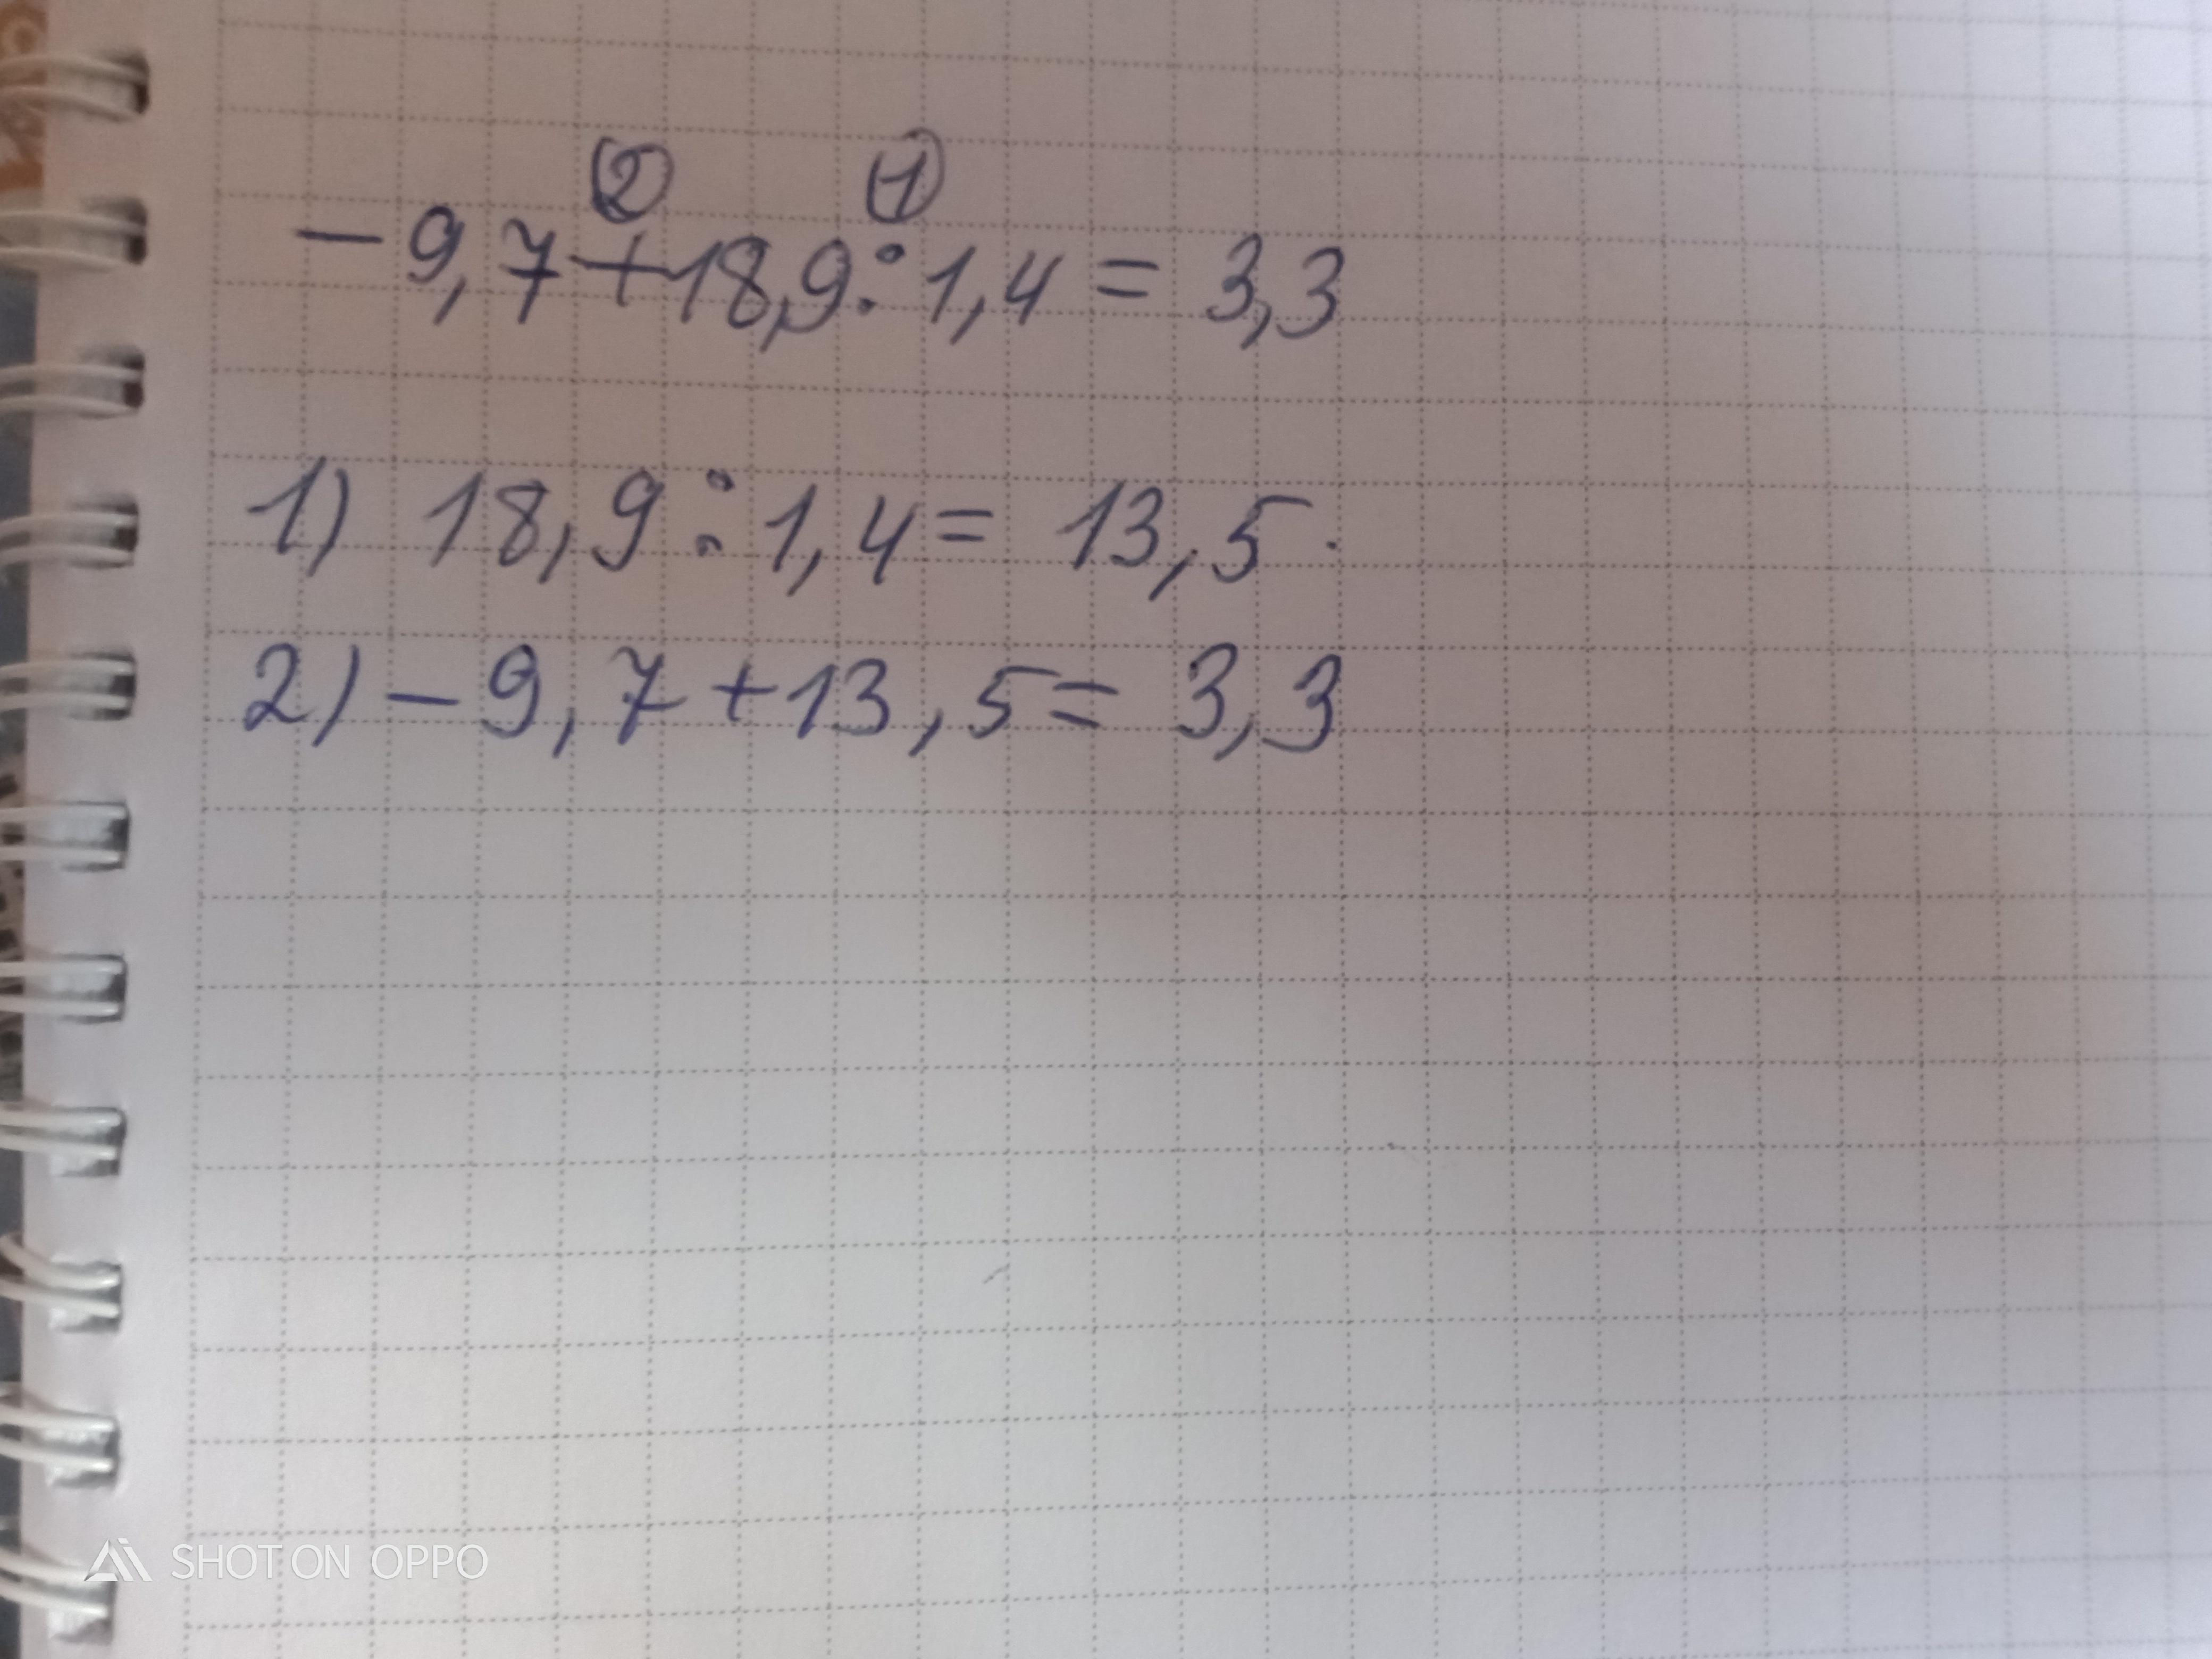 ② ①
-9,7+18,9:1,4=3,3
1) 18,9:1,4=13,5.
2) -9,7+13,5=3,3
SHOT ON OPPO